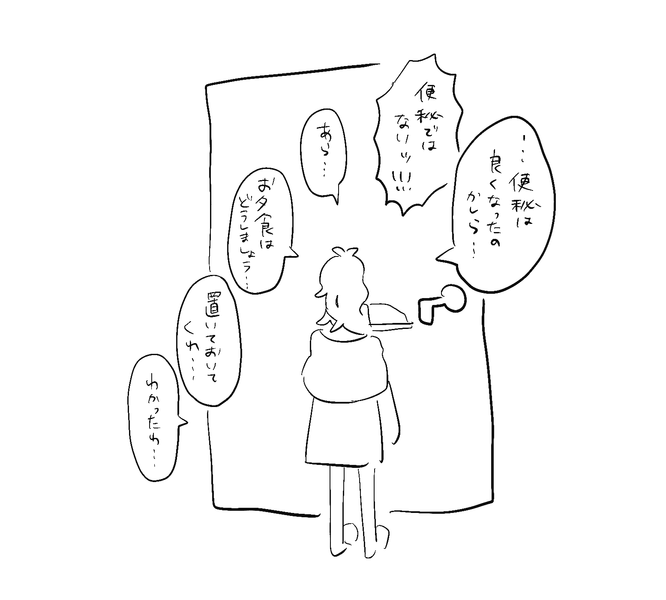 …便秘は
良くなったの
かしら…
便秘では
ないッ!!!
あら…
お夕食は
どうしましょう…
置いておいて
くわ…
わかったわ…